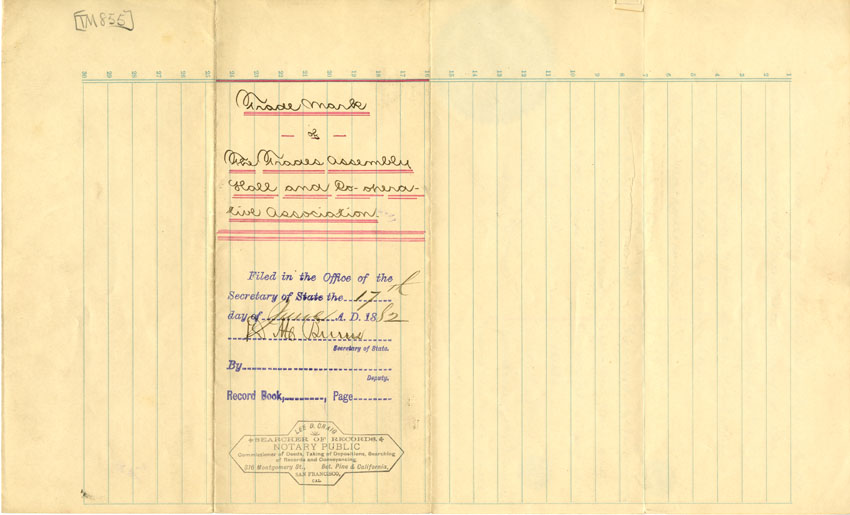 [TM855]
30 29 28 27 26 25 24 23 22 21 20 19 18 17 16 15 14 13 12 11 10 9 8 7 6 5 4 3 2 1
Trade Mark
— of —
The Trades Assembly
Hall and Co-opera-
tive Association
Filed in the Office of the
Secretary of State the 17th
day of June A. D. 1882
D M Burns
Secretary of State.
By
Deputy.
Record Book, , Page
LEE D. CRAIG
SEARCHER OF RECORDS,
NOTARY PUBLIC
Commissioner of Deeds, Taking of Depositions, Searching
of Records and Conveyancing,
316 Montgomery St., Bet. Pine & California,
SAN FRANCISCO,
CAL.